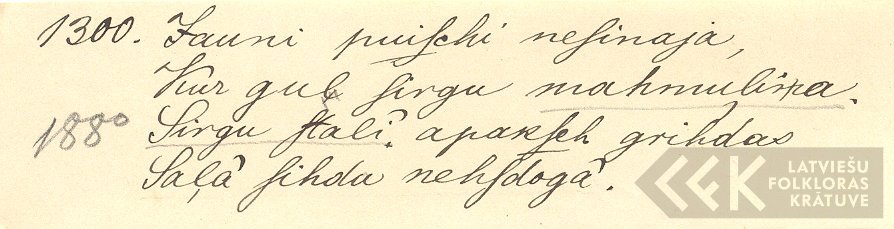 1300. Jauni puiſchi neſinaja,
Kur guļ ſirgu mahmuliņa.
1880 Sirgu ſtalî, apakſch grihdas
Saļâ ſihda nehſdogâ.
LATVIEŠU
FOLKLORAS
KRĀTUVE